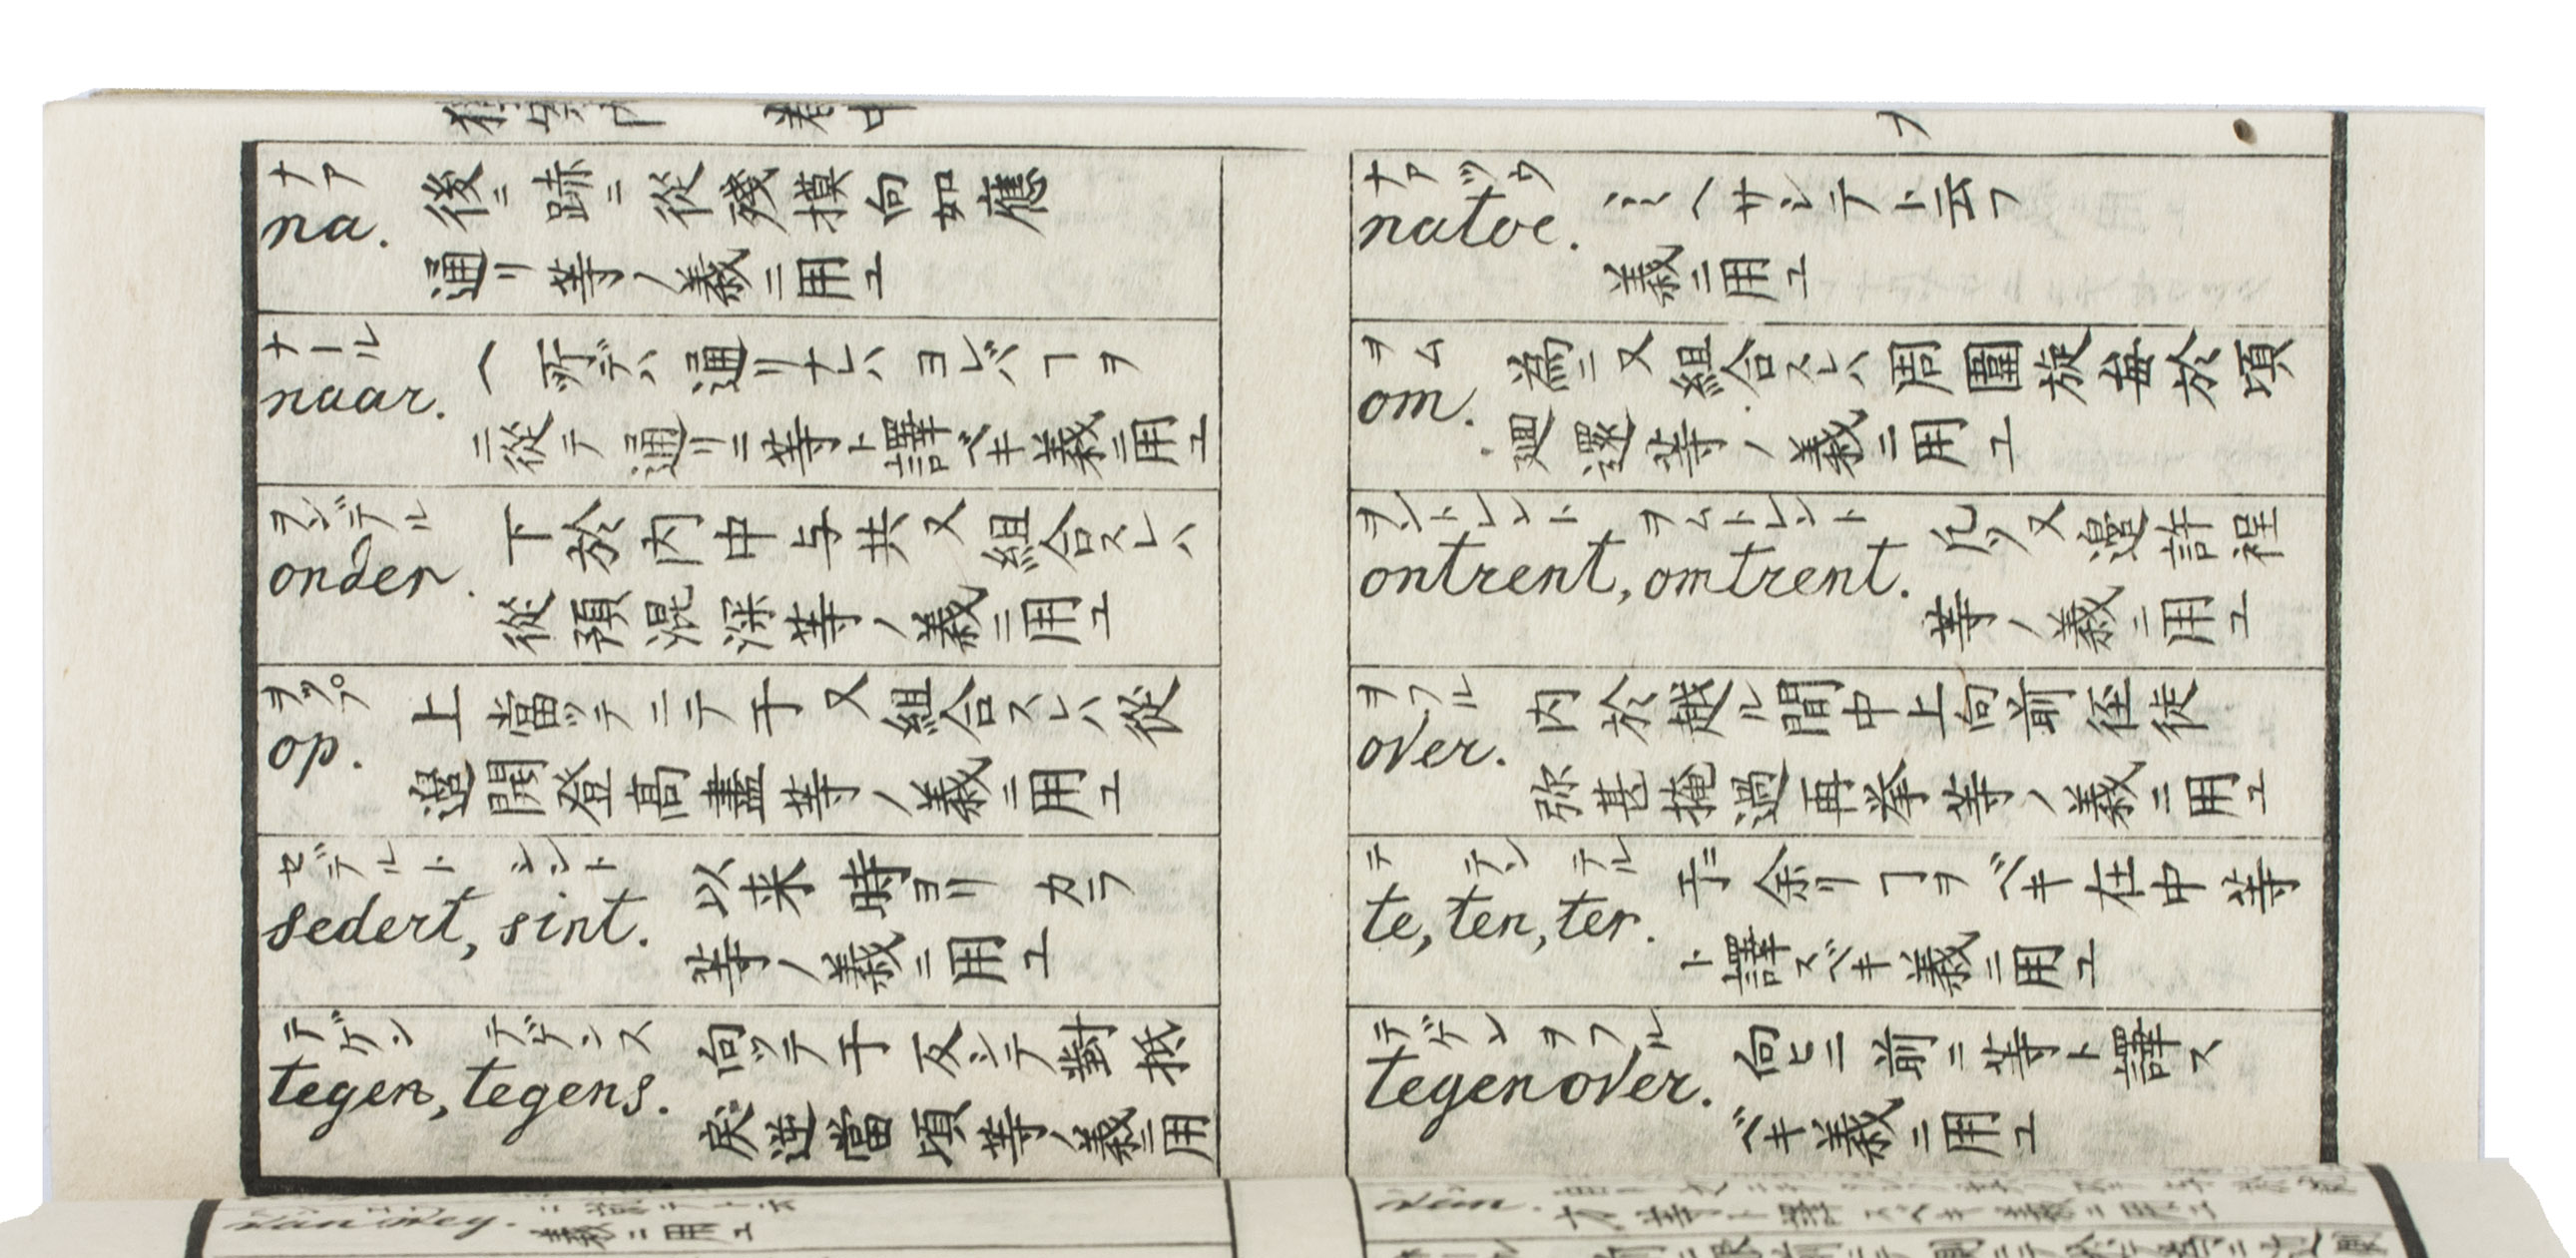 ナア
na.
後ニ 跡ニ 從 殘 摸 向 如 應
通リ 等ノ義ニ用ユ
ナアツウ
natoe.
ヘサシテト云フ
義ニ用ユ
ナール
naar.
ヘ 所デハ 通リナレハ ヨレバ ヿヲ
ニ從テ 通リニ 等ト譯ベキ義ニ用ユ
ヲム
om.
為ニ 又組合スレハ 周 圍 旋 毎 於 頃
廻 還 等ノ義ニ用ユ
ヲンデル
onder.
下 於 内 中 与 共 又組合スレハ
從 預 混 深 等ノ義ニ用ユ
ヲントレント ヲムトレント
ontrent, omtrent.
凡ソ 又 邊 許 程
等ノ義ニ用ユ
ヲップ
op.
上 當ッテ ニテ 于 又組合スレハ 從
邊 開 登 高 盡 等ノ義ニ用ユ
ヲフル
over.
内 於 越ル 間 中 上 向 前 径 徒
弥 甚 掩 過 再 挙 等ノ義ニ用ユ
セデルト シント
sedert, sint.
以来 時ヨリ カラ
等ノ義ニ用ユ
テ テン テル
te, ten, ter.
余リ ヿヲ ベキ 在 中 等
ト譯スベキ義ニ用ユ
テゲン テゲンス
tegen, tegens.
向ッテ 于 反シテ 對 抵
戻 逆 當 頃 等ノ義ニ用
テゲンヲフル
tegenover.
向ヒニ 前ニ 等ト譯ス
ベキ義ニ用ユ
義ニ用ユ
van.